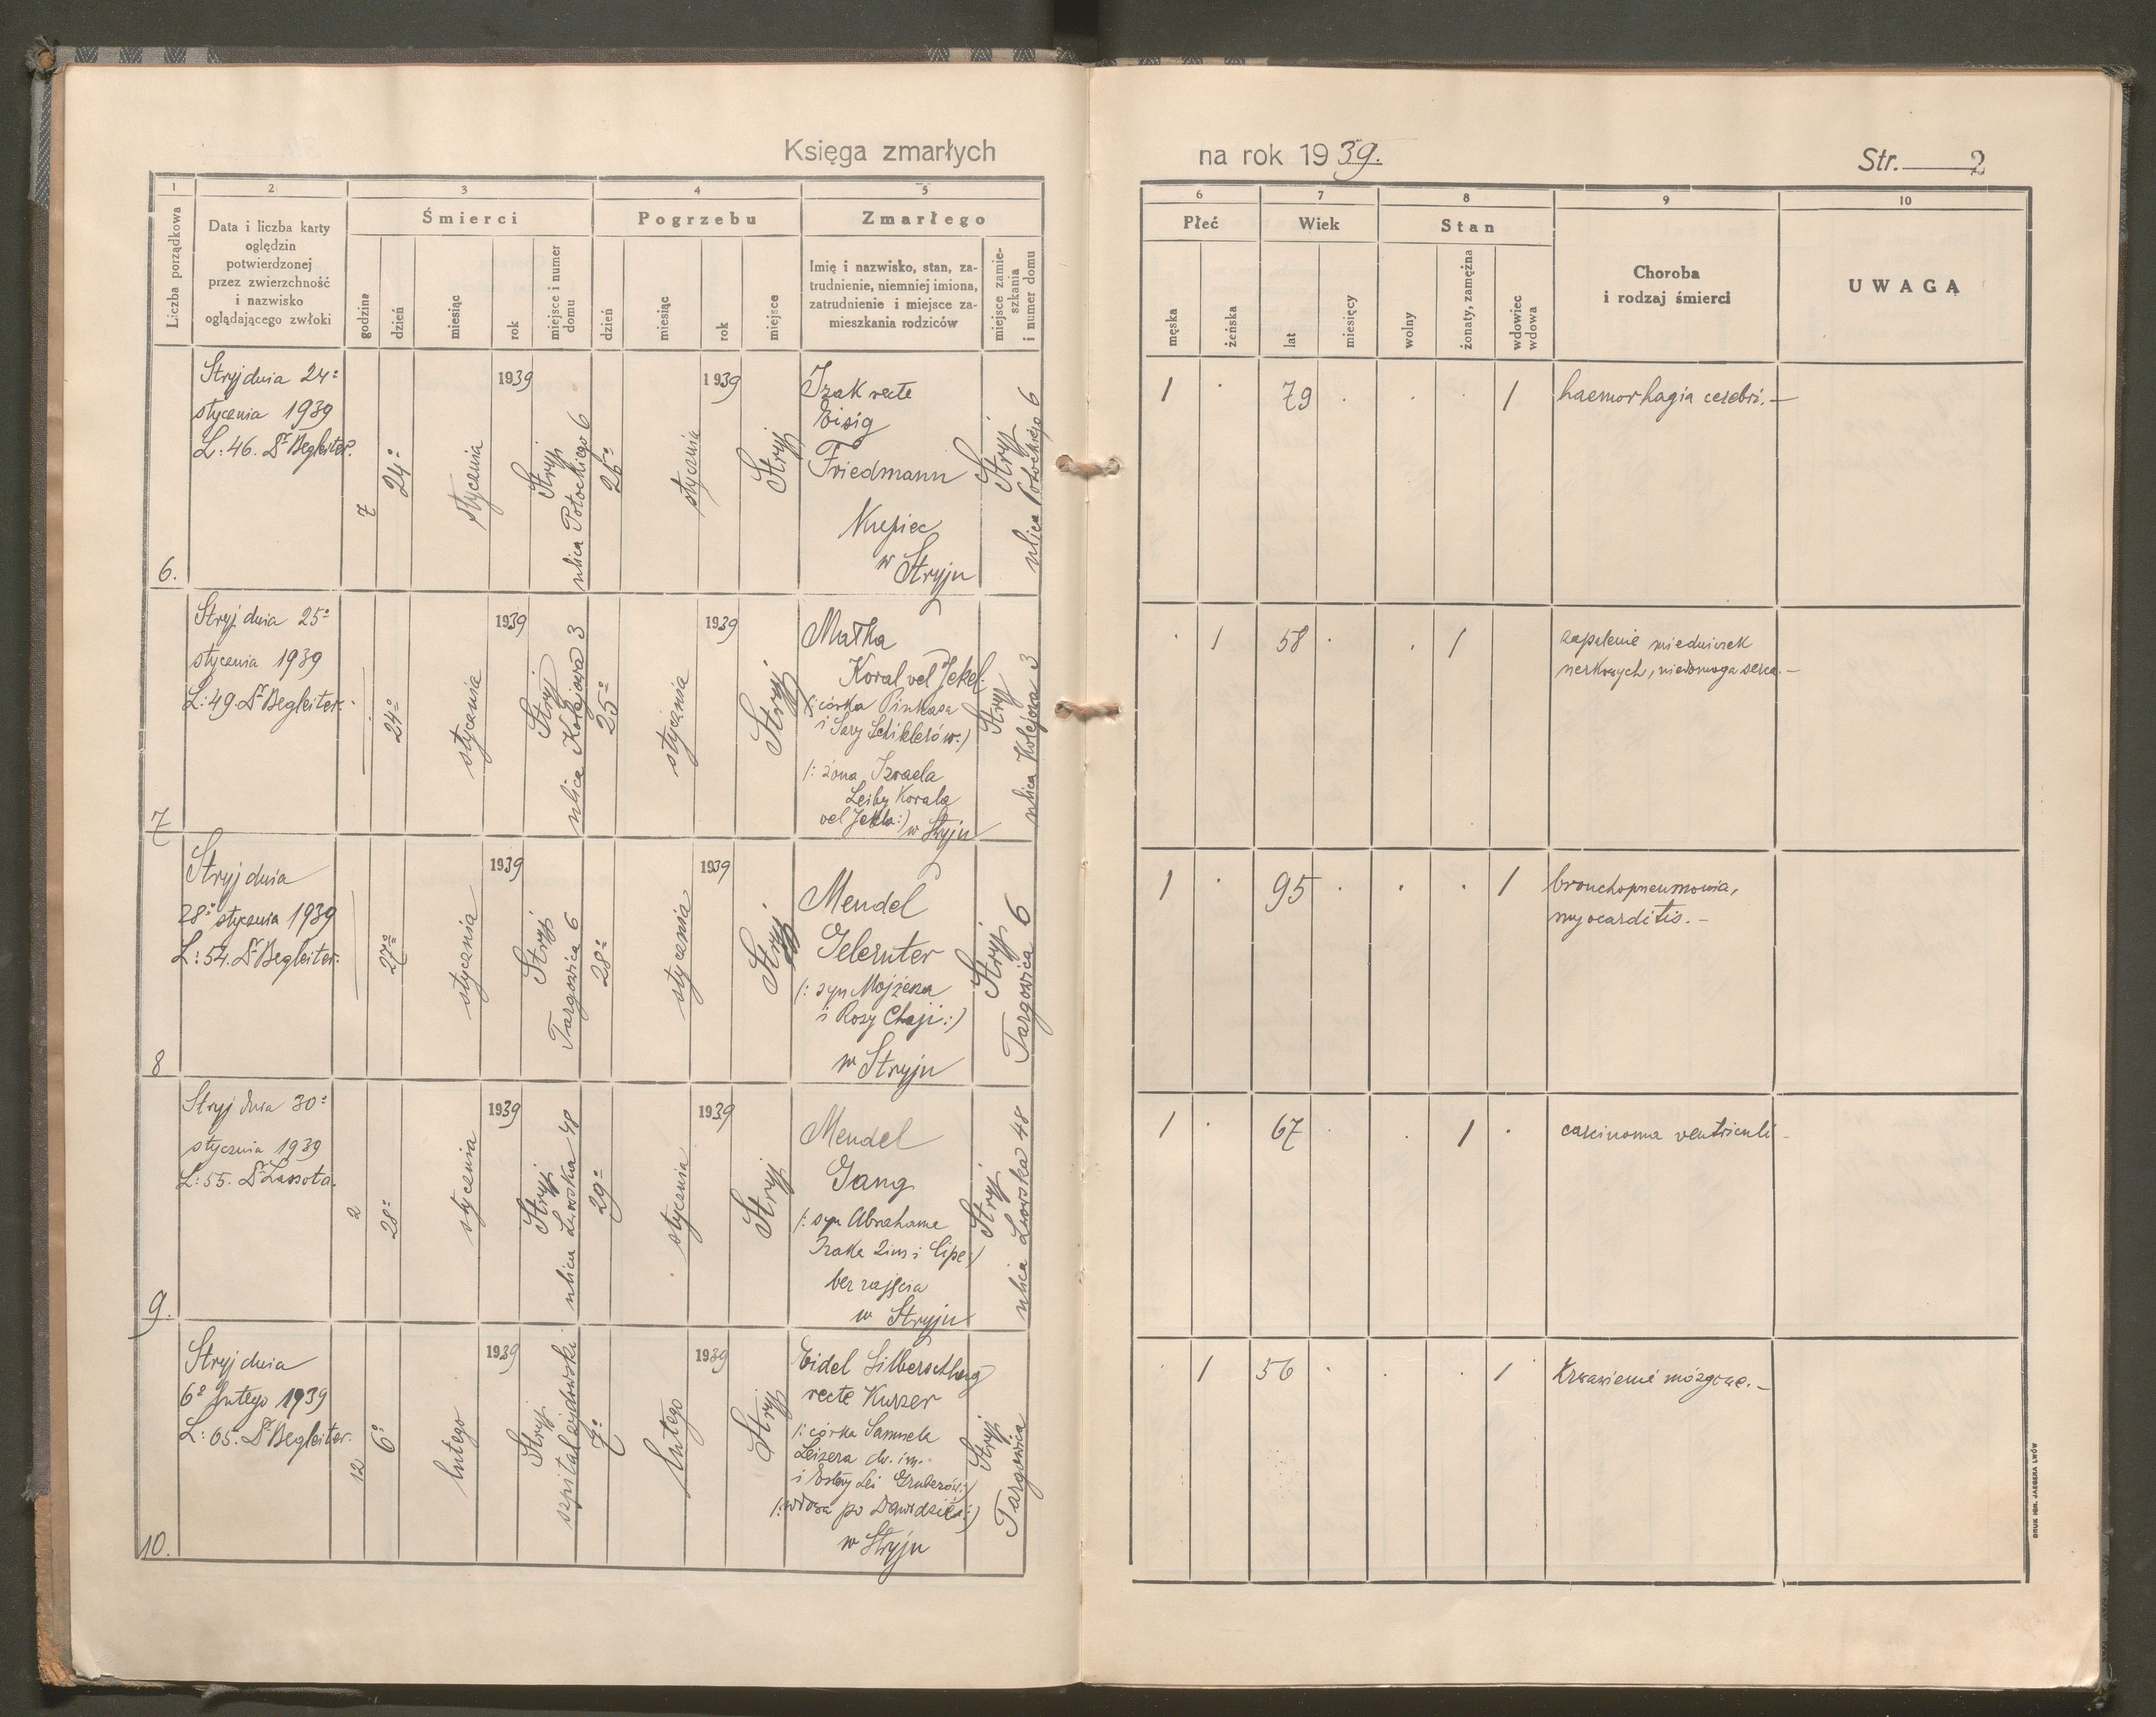 Księga zmarłych
na rok 1939.
Str. 2
1
2
3
4
5
6
7
8
9
10
Liczba porządkowa
Data i liczba karty
oględzin
potwierdzonej
przez zwierzchność
i nazwisko
oglądającego zwłoki
Śmierci
godzina
dzień
miesiąc
rok
miejsce i numer
domu
Pogrzebu
dzień
miesiąc
rok
miejsce
Zmarłego
Imię i nazwisko, stan, za-
trudnienie, niemniej imiona,
zatrudnienie i miejsce za-
mieszkania rodziców
miejsce zamie-
szkania
i numer domu
Płeć
męska
żeńska
Wiek
lat
miesięcy
Stan
wolny
żonaty, zamężna
wdowiec
wdowa
Choroba
i rodzaj śmierci
UWAGA
6.
Stryj dnia 24º
stycznia 1939
L: 46. Dr Begleiter.
7
24º
stycznia
1939
Stryj
ulica Potockiego 6
26º
stycznia
1939
Stryj
Izak recte
Eisig
Friedmann
Kupiec
w Stryju
Stryj
ulica Potockiego 6
1
79
1
haemorhagia cerebri.—
7
Stryj dnia 25º
stycznia 1939
L: 49. Dr Begleiter.
24º
stycznia
1939
Stryj
ulica Kolejowa 3
25º
stycznia
1939
Stryj
Malka
Koral vel Jekel
/: córka Pinkasa
i Sary Schiklerów :/
/: żona Izraela
Leiby Korala
vel Jekla :/ w Stryju
Stryj
ulica Kolejowa 3
1
58
1
zapalenie miedniczek
nerkowych, niedomoga serca.—
8
Stryj dnia
28º stycznia 1939
L: 54. Dr Begleiter.
27º
stycznia
1939
Stryj
Targowica 6
28º
stycznia
1939
Stryj
Mendel
Gelernter
/: syn Mojżesza
i Rozy Chaji :/
w Stryju
Stryj
Targowica 6
1
95
1
bronchopneumonia,
myocarditis.—
9.
Stryj dnia 30º
stycznia 1939
L: 55. Dr Lassota.
2
28º
stycznia
1939
Stryj
ulica Lwowska 48
29º
stycznia
1939
Stryj
Mendel
Gang
/: syn Abrahama
Izaka 2im i Cipe :/
bez zajęcia
w Stryju
Stryj
ulica Lwowska 48
1
67
1
carcinoma ventriculi—
10.
Stryj dnia
6º lutego 1939
L: 65. Dr Begleiter.
12
6º
lutego
1939
Stryj
szpital żydowski
7º
lutego
1939
Stryj
Eidel Silberschlag
recte Kurzer
/: córka Samuela
Leizera dw. im.
i Estery Lei Gruberów :/
/: wdowa po Dawidzie :/
w Stryju
Stryj
Targowica
1
56
1
Krwawienie mózgowe.—
DRUK IGN. JAEGERA LWÓW